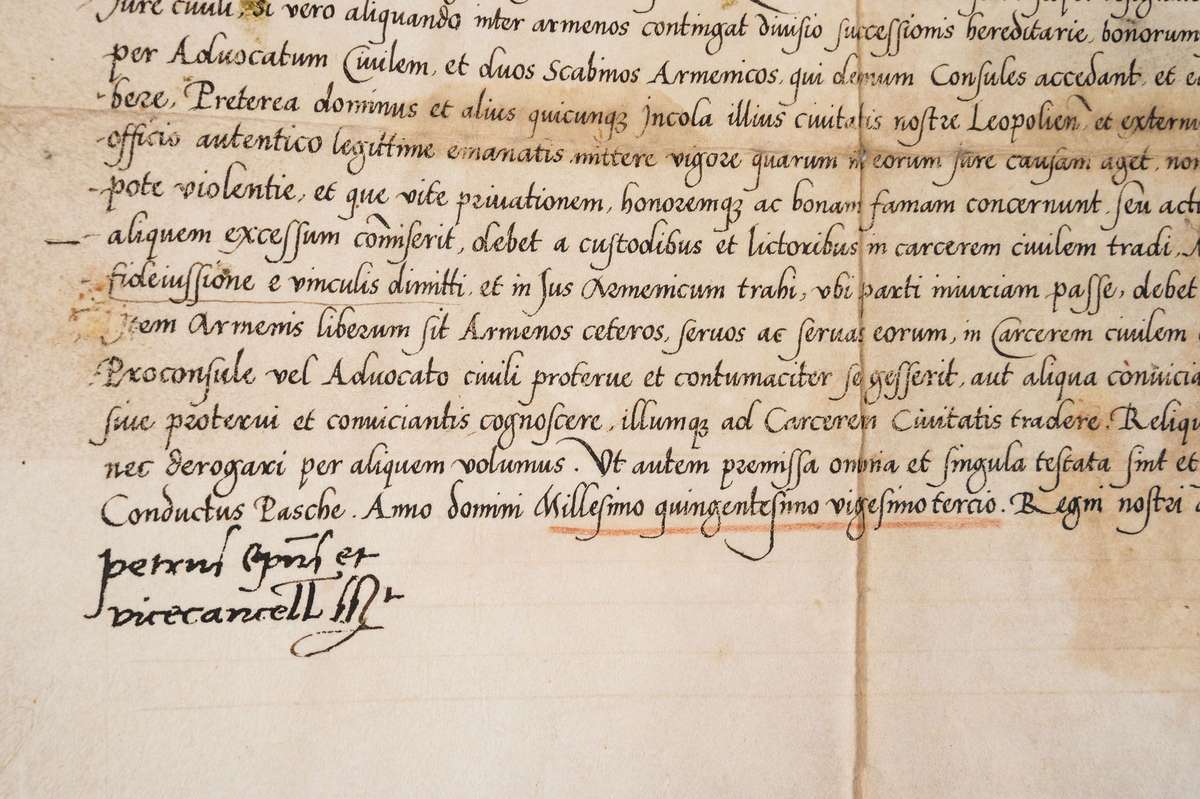 Jure civili, si vero aliquando inter armenos contingat divisio successionis hereditarie, bonorum
per Advocatum Civilem, et duos Scabinos Armenicos, qui demum Consules accedant, et
bere, Preterea dominus et alius quicunqꝫ Incola illius civitatis nostre Leopolien̄ et extern
officio autentico legittime emanatis mittere vigore quarum in eorum jure causam aget, non
pote violentie, et que vite privationem, honoremqꝫ ac bonam famam concernunt, seu act
aliquem excessum com̄iserit, debet a custodibus et lictoribus in carcerem civilem tradi,
fideiussione e vinculis dimitti, et in Jus Armenicum trahi, ubi parti iniuriam passe, debet
Item Armenis liberum sit Armenos ceteros, servos ac servas eorum, in Carcerem civilem
Proconsule vel Advocato civili proterve et contumaciter se gesserit, aut aliqua convicia
sive protervi et conviciantis cognoscere, illumqꝫ ad Carcerem Civitatis tradere. Reliqu
nec derogari per aliquem volumus. Ut autem premissa omnia et singula testata sint et
Conductus Pasche. Anno domini Millesimo quingentesimo vigesimotercio. Regni nostri
petrus Ep̄us et
vicecancell